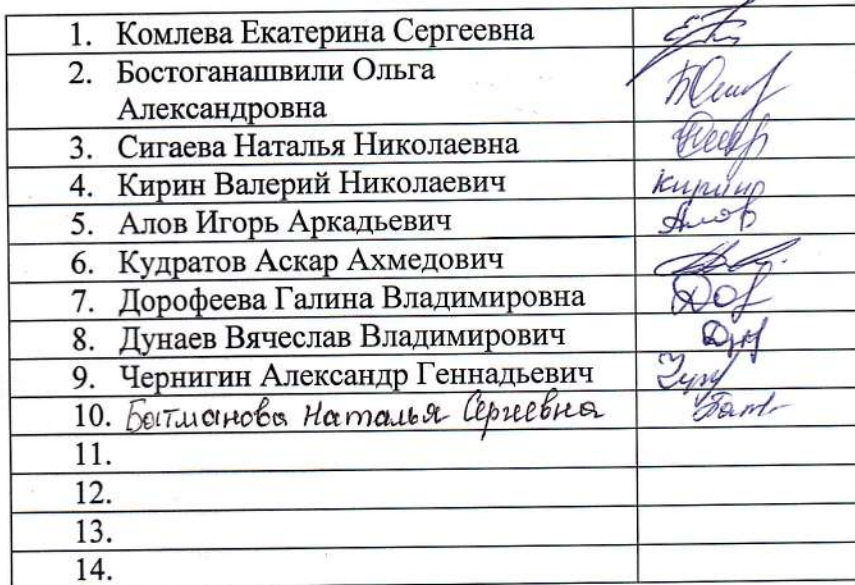 1. Комлева Екатерина Сергеевна
2. Бостоганашвили Ольга
Александровна
3. Сигаева Наталья Николаевна
4. Кирин Валерий Николаевич Кирин
5. Алов Игорь Аркадьевич Алов
6. Кудратов Аскар Ахмедович
7. Дорофеева Галина Владимировна
8. Дунаев Вячеслав Владимирович
9. Чернигин Александр Геннадьевич
10. Батманова Наталья Сергеевна
11.
12.
13.
14.